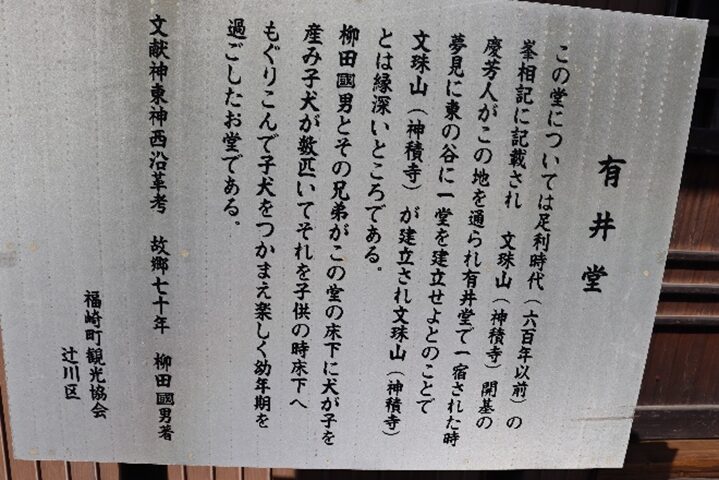 有井堂
この堂については足利時代（六百年以前）の
峯相記に記載され　文珠山（神積寺）開基の
慶芳人がこの地を通られ有井堂で一宿された時
夢見に東の谷に一堂を建立せよとのことで
文珠山（神積寺）が建立され文珠山（神積寺）
とは縁深いところである。
柳田國男とその兄弟がこの堂の床下に犬が子を
産み子犬が数匹いてそれを子供の時床下へ
もぐりこんで子犬をつかまえ楽しく幼年期を
過ごしたお堂である。
文献神東神西沿革考　故郷七十年　柳田國男著
福崎町観光協会
辻川区